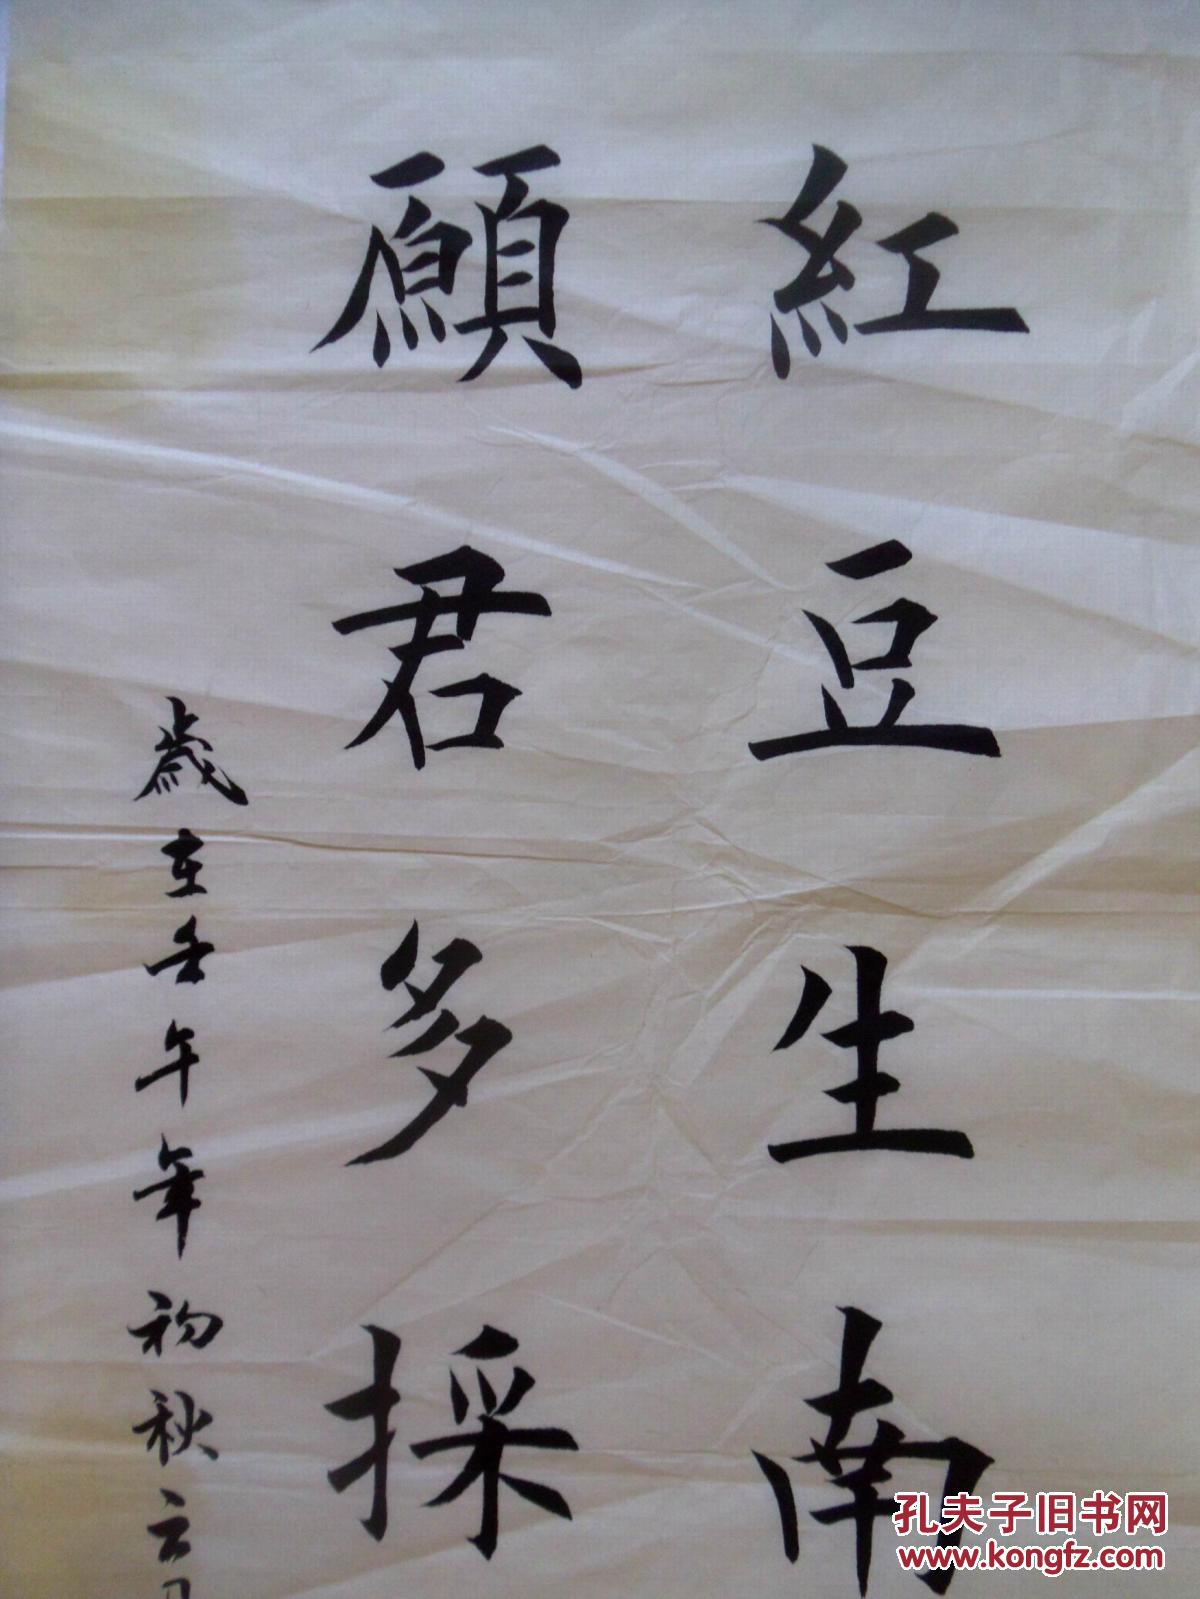 紅豆生南
願君多採
歲在壬午年初秋云
孔夫子旧书网
www.kongfz.com